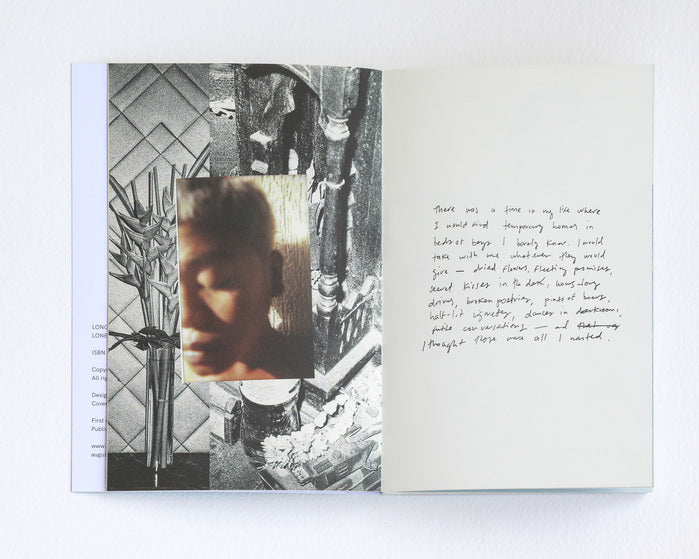 LONG
LONE
ISBN
Copy
All rig
Desig
Cover
First e
Publis
www.
augus
There was a time in my life where
I would find temporary homes in
beds of boys I barely know. I would
take with me whatever they would
give — dried flowers, fleeting promises,
secret kisses in the dark, hours-long
drives, broken poetries, pints of beers,
half-lit cigarettes, dances in darkrooms,
futile conversations — and
I thought those were all I wanted.